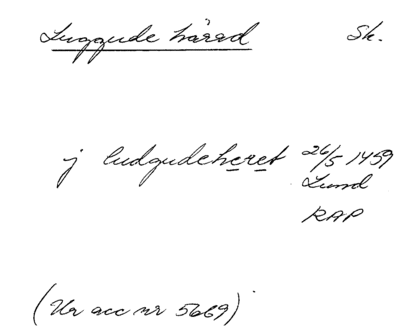 Luggude härad Sk.
j ludgudeheret 26/5 1459
Lund
RAP
(Ur acc nr 5669)